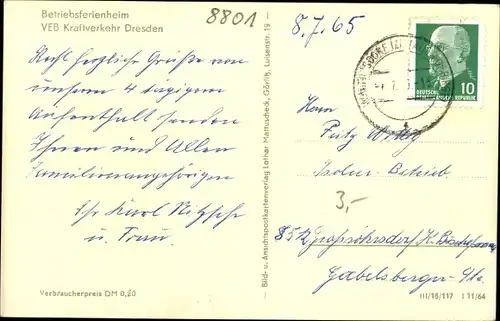 Betriebsferienheim
VEB Kraftverkehr Dresden
8801
8.7.65
Recht herzliche Grüße von
unserem 4 tägigem
Aufenthalt senden
Ihnen und Allen
Familienangehörigen
Ihr Karl Nitzsche
u. Frau.
Verbraucherpreis DM 0,20
Bild- u. Ansichtspostkartenverlag Lothar Mattuscheck, Görlitz, Luisenstr. 19
10
DEUTSCHE DEMOKRATISCHE REPUBLIK
Herrn
Fritz
Isolier-Betrieb
3,-
Großröhrsdorf
Gabelsberger-Str.
III/18/117 I 11/64